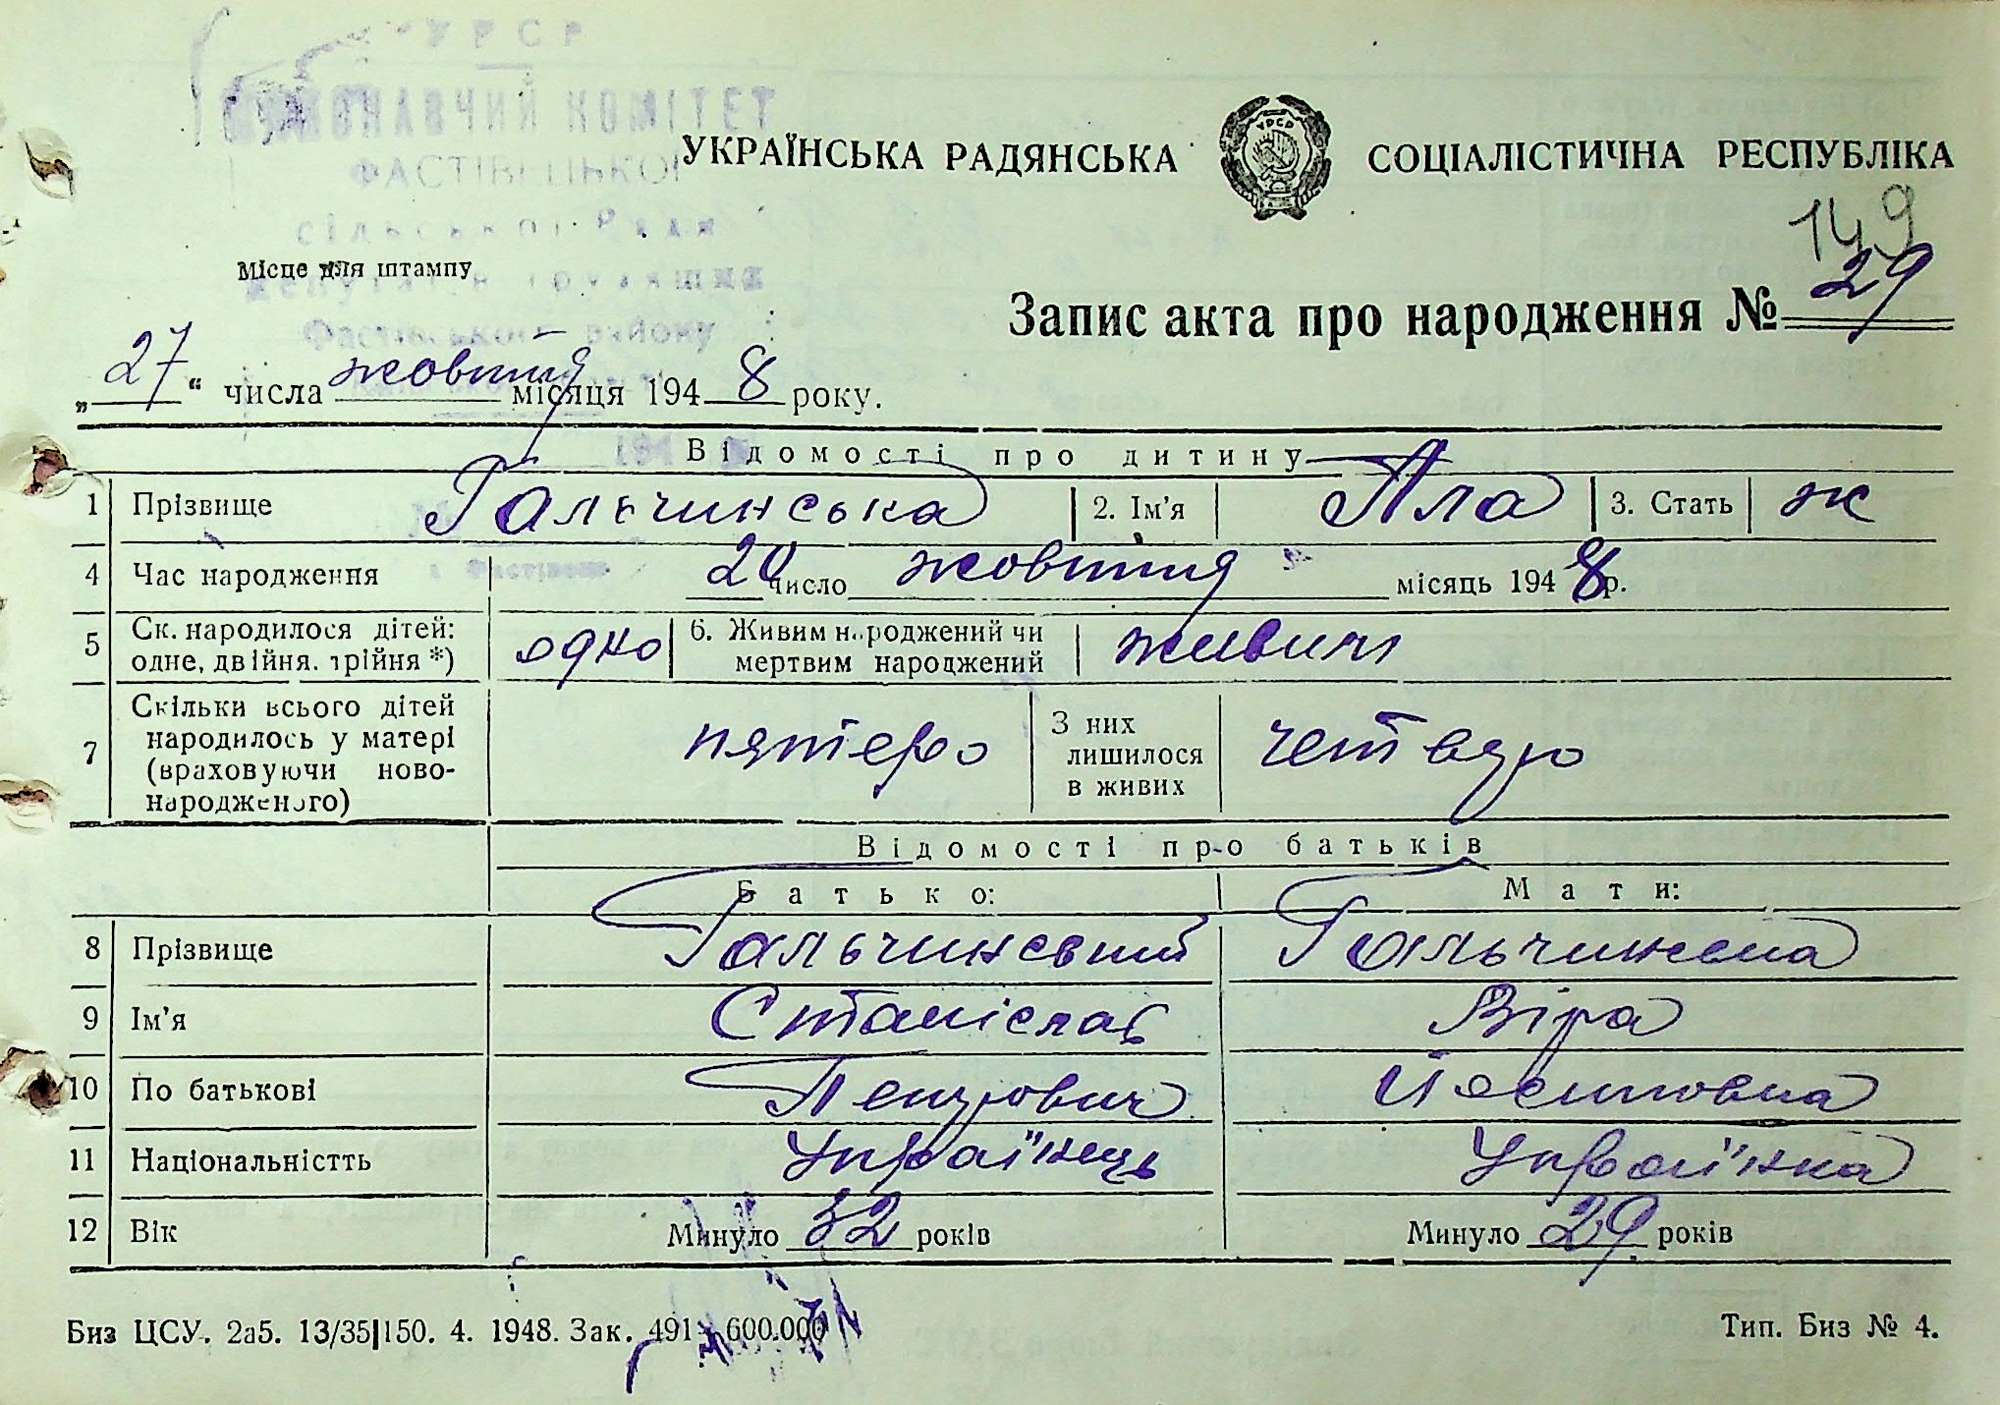 УРСР
ВИКОНАВЧИЙ КОМІТЕТ
ФАСТІВЕЦЬКОЇ
сільської Ради
депутатів трудящих
Фастівського району
УКРАЇНСЬКА РАДЯНСЬКА СОЦІАЛІСТИЧНА РЕСПУБЛІКА
149
Місце для штампу
Запис акта про народження № 29
„27“ числа жовтня місяця 1948 року.
Відомості про дитину
1 Прізвище Гальчинська 2. Ім'я Алла 3. Стать ж
4 Час народження 20 число жовтня місяць 1948 р.
5 Ск. народилося дітей: одно 6. Живим народжений чи живим
одне, двійня, трійня *) мертвим народжений
7 Скільки всього дітей народилось у матері (враховуючи ново-народженого) пятеро З них лишилося в живих четверо
Відомості про батьків
Батько: Мати:
8 Прізвище Гальчинський Гальчинська
9 Ім'я Станіслав Віра
10 По батькові Петрович Йосиповна
11 Національністть Українець Українка
12 Вік Минуло 32 років Минуло 29 років
Биз ЦСУ. 2а5. 13/35|150. 4. 1948. Зак. 491 600.000 Тип. Биз № 4.